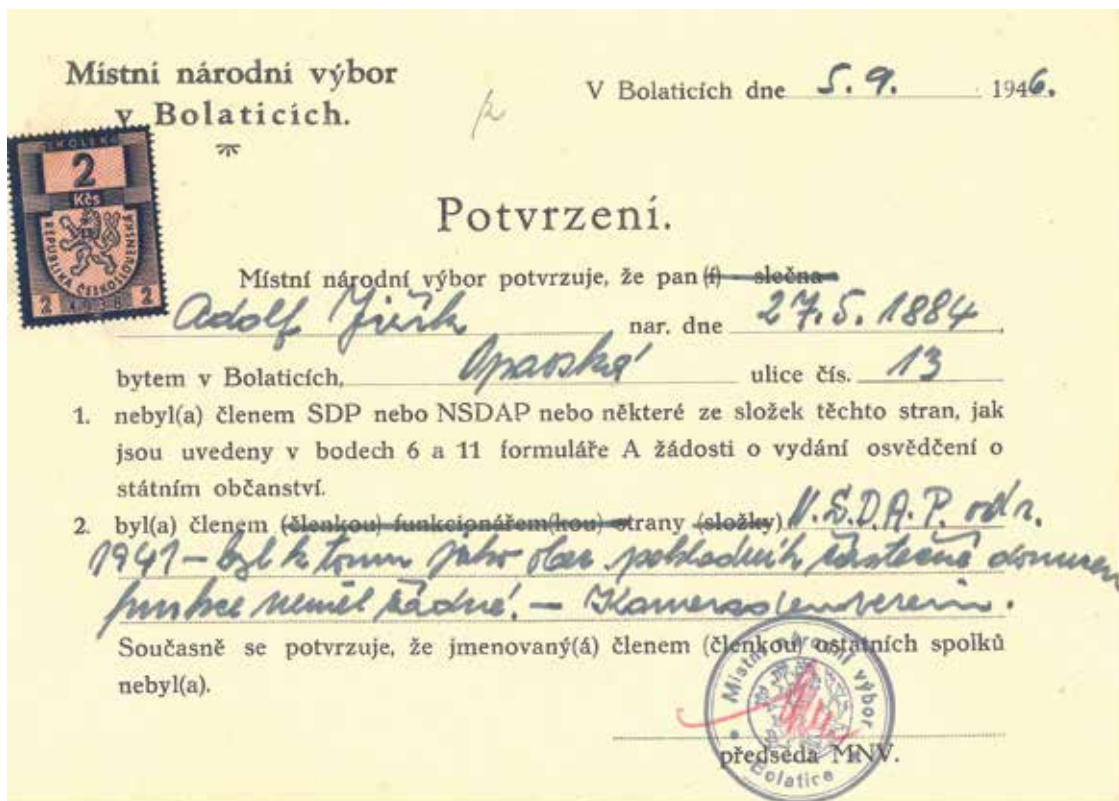 Místní národní výbor
v Bolaticích.
V Bolaticích dne 5. 9. 1946.
KOLEK
2
Kčs
REPUBLIKA ČESKOSLOVENSKÁ
2 1938 2
Potvrzení.
Místní národní výbor potvrzuje, že pan (í) - slečna
Adolf Jiřík nar. dne 27. 5. 1884
bytem v Bolaticích, Opavská ulice čís. 13
1. nebyl(a) členem SDP nebo NSDAP nebo některé ze složek těchto stran, jak
jsou uvedeny v bodech 6 a 11 formuláře A žádosti o vydání osvědčení o
státním občanství.
2. byl(a) členem (členkou) funkcionářem(kou) strany (složky) N.S.D.A.P. od r.
1941 – byl k tomu jako obec. pokladník částečně donucen
funkce neměl žádné. –
Současně se potvrzuje, že jmenovaný(á) členem (členkou) ostatních spolků
nebyl(a).
Místní národní výbor
Bolatice
předseda MNV.